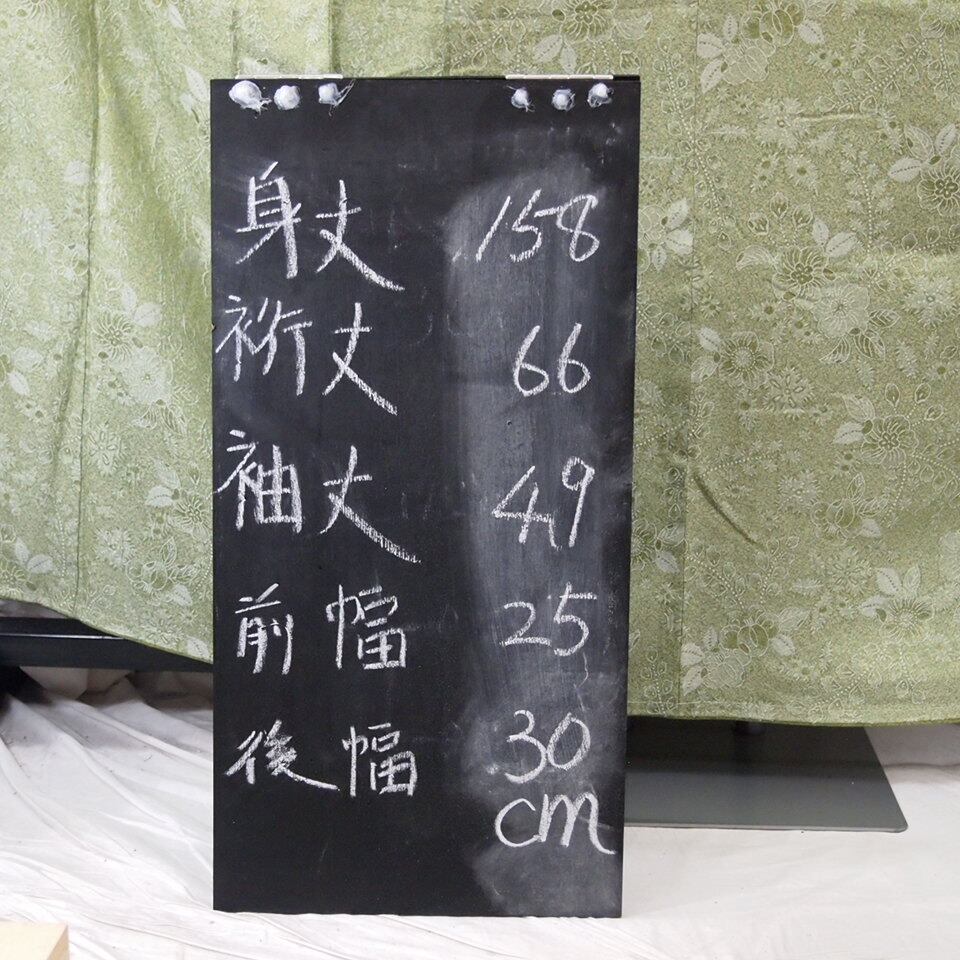 身丈 158
裄丈 66
袖丈 49
前幅 25
後幅 30
cm